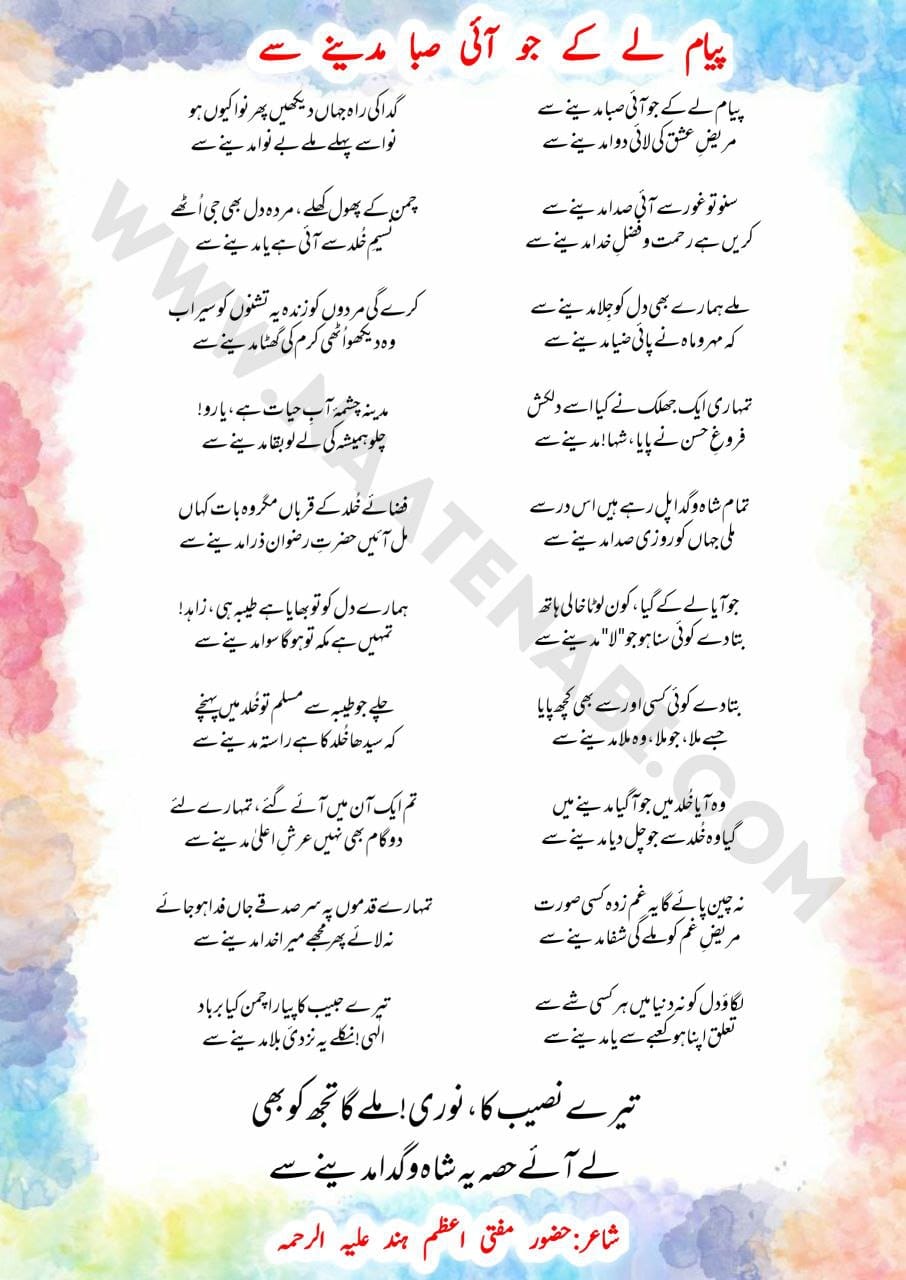 پیام لے کے جو آئی صبا مدینے سے
پیام لے کے جو آئی صبا مدینے سے
مریضِ عشق کی لائی دوا مدینے سے
سنو تو غور سے آئی صدا مدینے سے
کریں ہے رحمت و فضلِ خدا مدینے سے
ملے ہمارے بھی دل کو جِلا مدینے سے
کہ مہر و ماہ نے پائی ضیا مدینے سے
تمہاری ایک جھلک نے کیا اسے دلکش
فروغِ حسن نے پایا، شہا! مدینے سے
تمام شاہ و گدا پل رہے ہیں اس در سے
ملی جہاں کو روزی صدا مدینے سے
جو آیا لے کے گیا، کون لوٹا خالی ہاتھ
بتا دے کوئی سنا ہو جو "لا" مدینے سے
بتا دے کوئی کسی اور سے بھی کچھ پایا
جسے ملا، جو ملا، وہ ملا مدینے سے
وہ آیا خُلد میں جو آ گیا مدینے میں
گیا وہ خُلد سے جو چل دیا مدینے سے
نہ چین پائے گا یہ غم زدہ کسی صورت
مریضِ غم کو ملے گی شفا مدینے سے
لگاؤ دل کو نہ دنیا میں ہر کسی شے سے
تعلق اپنا ہو کعبے سے یا مدینے سے
گدا کی راہ جہاں دیکھیں پھر نوا کیوں ہو
نوا سے پہلے ملے بے نوا مدینے سے
چمن کے پھول کھلے، مردہ دل بھی جی اُٹھے
نسیمِ خُلد سے آئی ہے یا مدینے سے
کرے گی مردوں کو زندہ یہ تشنوں کو سیراب
وہ دیکھو اُٹھی کرم کی گھٹا مدینے سے
مدینہ چشمۂ آبِ حیات ہے، یارو!
چلو ہمیشہ کی لے لو بقا مدینے سے
فضائے خُلد کے قرباں مگر وہ بات کہاں
مل آئیں حضرتِ رضوان ذرا مدینے سے
ہمارے دل کو تو بھایا ہے طیبہ ہی، زاہد!
تمہیں ہے مکہ تو ہوگا سوا مدینے سے
چلے جو طیبہ سے مسلم تو خُلد میں پہنچے
کہ سیدھا خُلد کا ہے راستہ مدینے سے
تم ایک آن میں آئے گئے، تمہارے لئے
دو گام بھی نہیں عرشِ اعلیٰ مدینے سے
تمہارے قدموں پہ سر صدقے جاں فدا ہو جائے
نہ لائے پھر مجھے میرا خدا مدینے سے
تیرے حبیب کا پیارا چمن کیا برباد
الٰہی! نکلے یہ نزدی بلا مدینے سے
تیرے نصیب کا، نوری! ملے گا تجھ کو بھی
لے آئے حصہ یہ شاہ و گدا مدینے سے
شاعر: حضور مفتی اعظم ہند علیہ الرحمہ
WWW.NAATENABI.COM